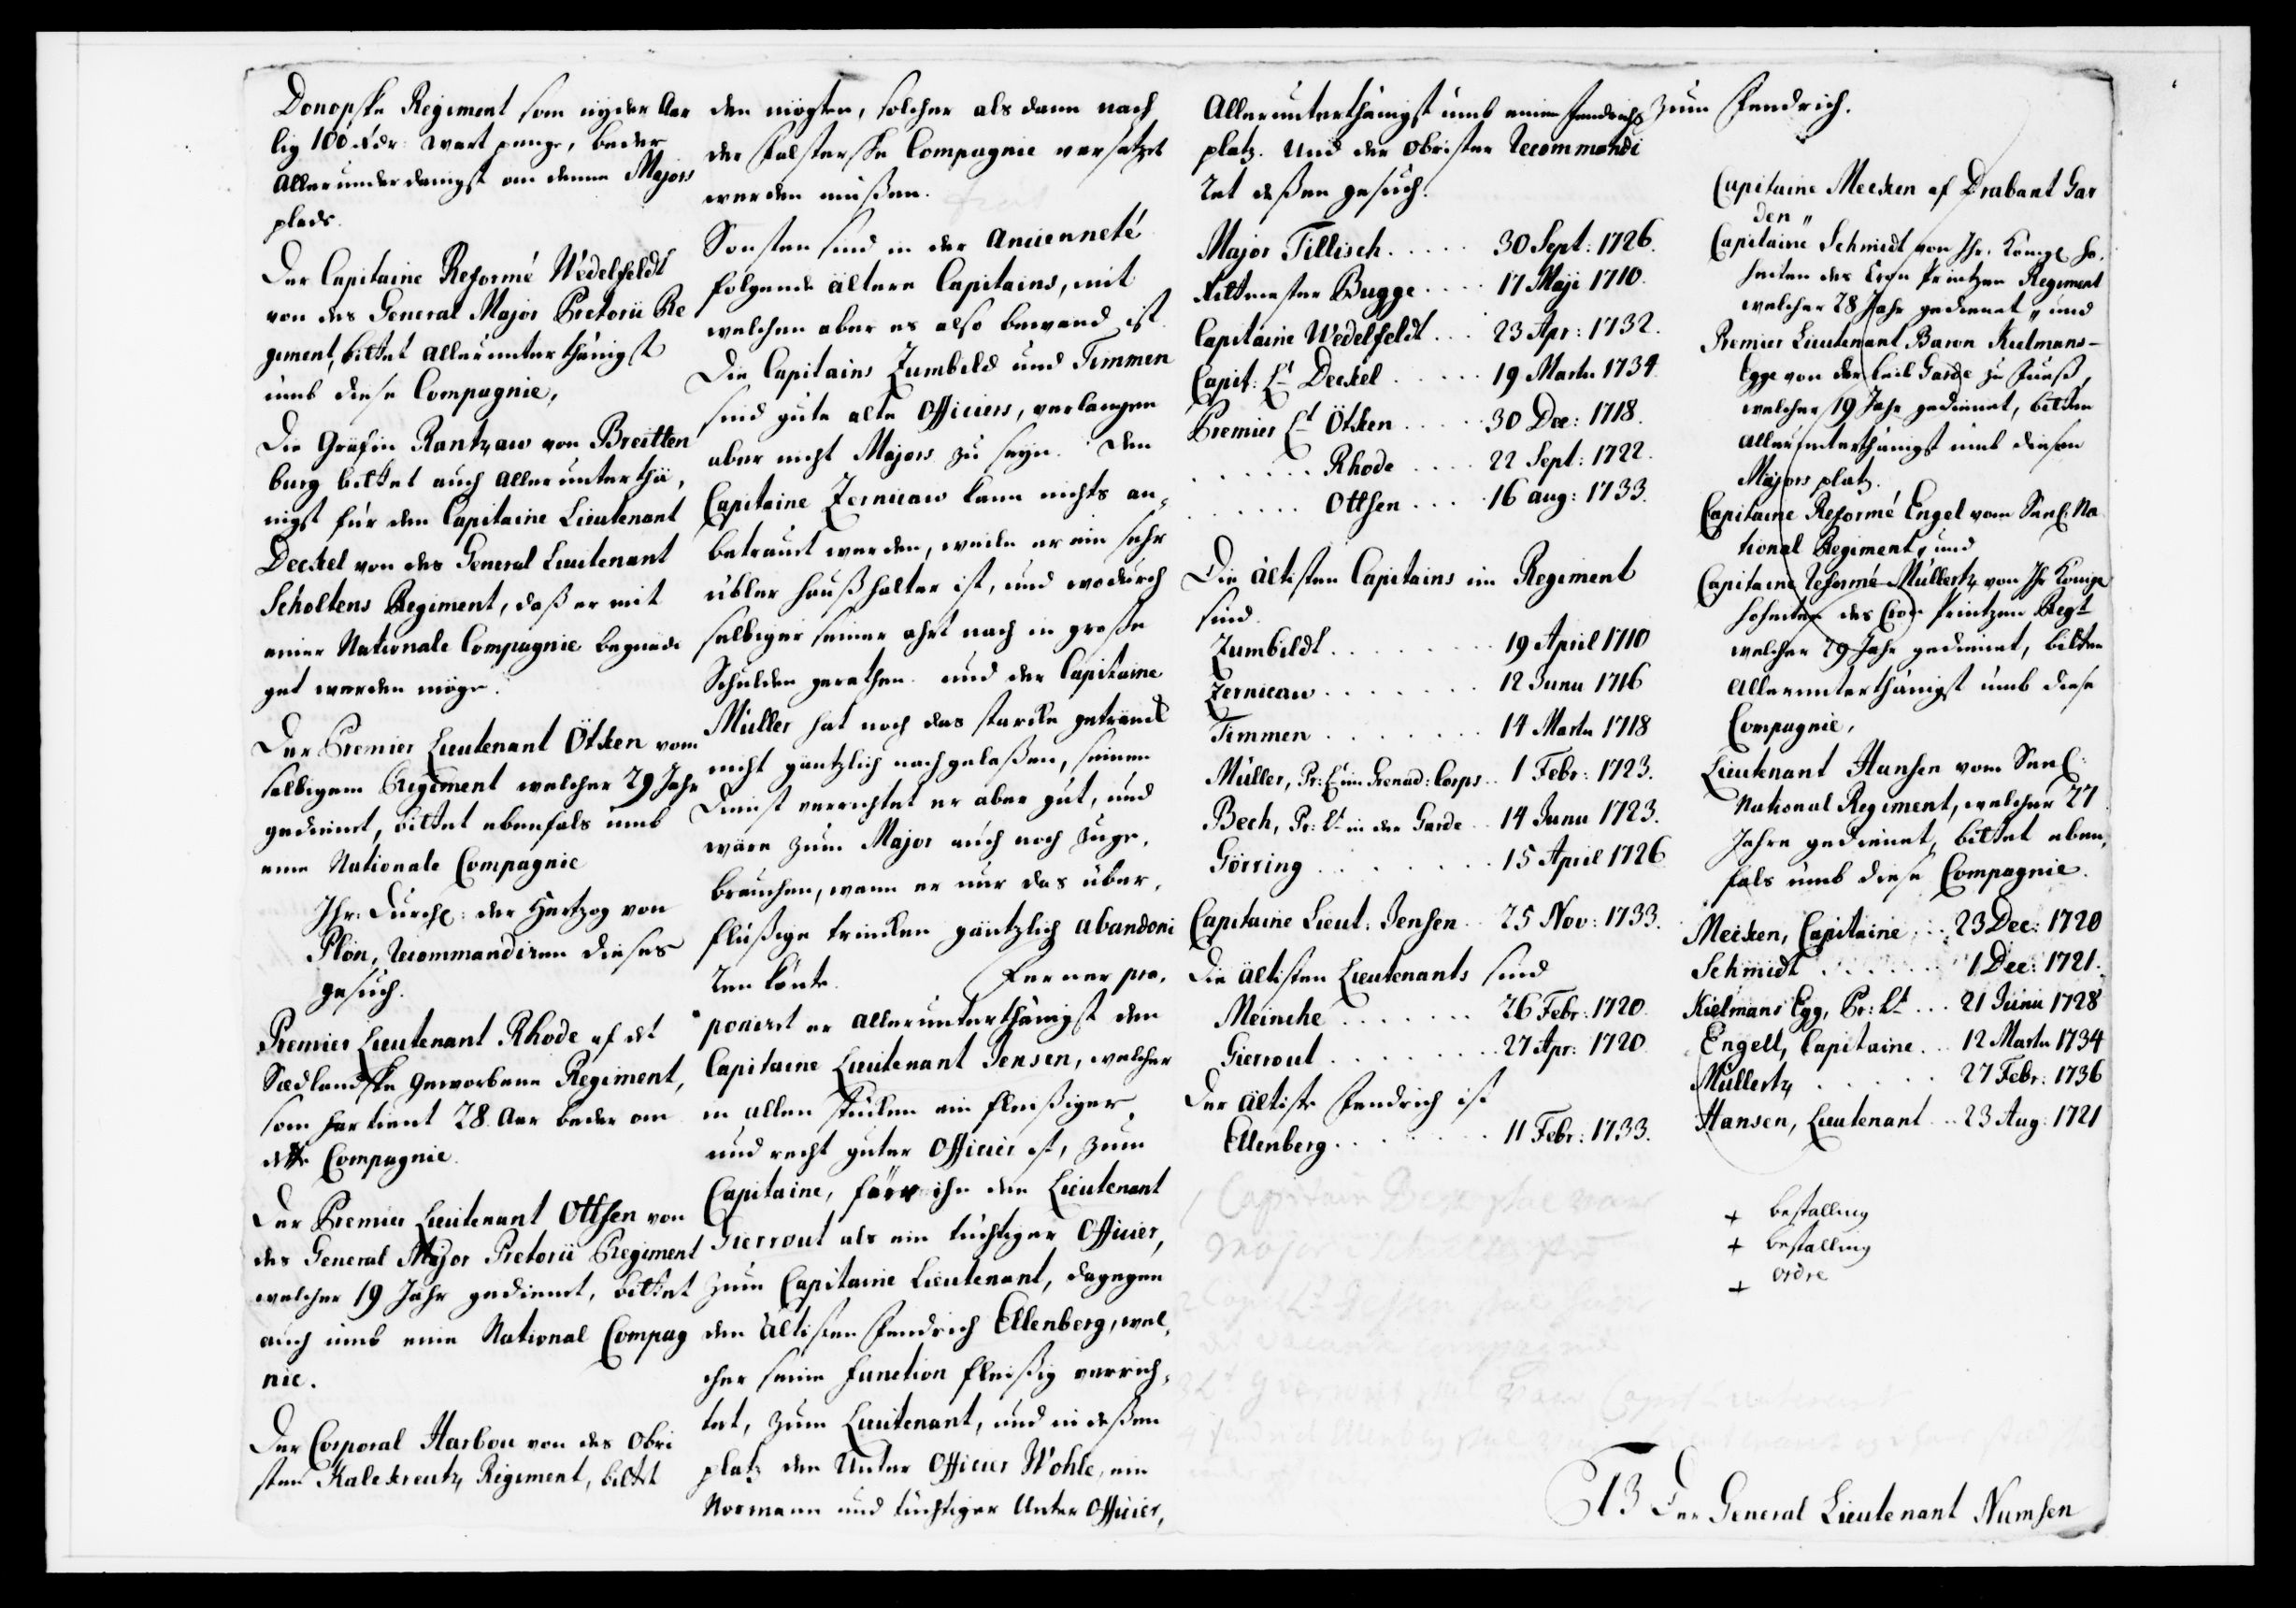 Donopske Regiment som nyder Aar
lig 100 Rdr. Wart penge, beder
allerunderdanigst om denne Majors
plads.
Der Capitaine Reformé Wedelfeldt
von des General Major Pretorii Re
giment, bittet allerunterthänigst
umb diese Compagnie,
Die Gräfin Rantzaw von Breitten
burg bittet auch allerunterthä,
nigst für den Capitaine Lieutenant
Deckel von des General Lieutenant
Scholtens Regiment, daß er mit
einer Nationale Compagnie begnadi
get werden möge.
Der Premier Lieutenant Ötken vom
selbigem Regiment welcher 29 Jahr
gedienet, bittet ebenfals umb
eine Nationale Compagnie
Ihr. Durchl: der Hertzog von
Plön, recommandiren dieses
gesuch.
Premier Lieutenant Rhode af det
Siællandske geworbene Regiment,
som har tient 28 Aar beder om
dette Compagnie.
Der Premier Lieutenant Ottsen von
des General Major Pretorii Regiment
welcher 19 Jahr gedienet, bittet
auch umb eine National Compag
nie.
Der Corporal Harbou von des Obri
sten Kalckreutz Regiment, bittet
den mögten, solcher als dann nach
der Falstersche Compagnie versetzet
werden müßen.
Sonsten sind in der Ancienneté
folgende ältere Capitains, mit
welchen aber es also bewand ist.
Die Capitains Zumbild und Timmen
sind gute alte Officiers, verlangen
aber nicht Majors zu seyn. Den
Capitaine Zernicaw kann nichts an,
betrauet werden, weilen er ein sehr
übler haußhalter ist, und wodurch
selbiger seiner ahrt nach in große
Schulden gerathen. und der Capitaine
Müller hat noch das starcke geträncke
nicht gäntzlich nachgelaßen, seinen
Dienst verrichtet er aber gut, und
wäre zum Major auch noch zuge,
brauchen, wann er nur das über,
flüßige trincken gäntzlich abandoni
ren könte. Ferner pro,
poniret er allerunterthänigst den
Capitaine Lieutenant Jensen, welcher
in allen Stücken ein fleißiger,
und recht guter Officier ist, zum
Capitaine, für ihn den Lieutenant
Gierrout als ein tüchtiger Officier,
zum Capitaine Lieutenant, dagegen
den ältisten Fendrich Ellenberg, wel,
cher seine function fleißig verrich,
tet, zum Lieutenant, und in deßen
platz den Unter Officier Wohle, ein
Normann und tüchtiger Unter Officier,
zum Fendrich.
Allerunterthänigst umb einen Fendrichs
platz. Und der Obrister recommandi
ret deßen gesuch.
Major Tillisch..... 30 Sept: 1726.
Rittmester Bugge.... 17 Maji 1710.
Capitaine Wedelfeldt... 23 Apr: 1732.
Capit: Lt Deckel..... 19 Martii 1734.
Premier Lt Ötken..... 30 Dec: 1718.
..... Rhode.... 22 Sept: 1722.
...... Ottsen... 16 aug: 1733.
Die ältisten Capitains im Regiment
sind
Zumbildt........ 19 April 1710
Zernicaw....... 12 Junii 1716
Timmen........ 14 Martii 1718
Müller, Pr: Lt im Grenad: Corps.. 1 Febr: 1723.
Bech, Pr: Lt in der Garde.. 14 Junii 1723.
Görring........ 15 April 1726
Capitaine Lieut: Jensen.. 25 Nov: 1733.
Die ältisten Lieutenants sind
Meincke....... 26 Febr: 1720.
Gierrout........ 27 Apr: 1720.
Der ältiste Fendrich ist
Ellenberg........ 11 Febr: 1733.
Capitaine Mecken af Drabant Gar
den"
Capitaine Schmidt von Ihr. Königl. Ho,
heiten des Cron Printzen Regiment
welcher 28 Jahr gedienet, und
Premier Lieutenant Baron Kielmans-
Egge von der Leib Garde zu Fueß,
welcher 19 Jahr gedienet, bitten
allerunterthänigst umb diesen
Majors platz.
Capitaine Reformé Engel vom National
Regiment, und
Capitaine reformé Müllertz von Ihr Königl
Hoheiten des Cron Printzen Regt
welcher 29 Jahr gedienet, bitten
Allerunterthänigst umb diese
Compagnie,
Lieutenant Hansen vom
National Regiment, welcher 27
Jahre gedienet, bittet eben,
fals umb diese Compagnie.
Mecken, Capitaine... 23 Dec: 1720
Schmidt....... 1 Dec: 1721.
Kielmans Egg, Pr: Lt... 21 Junii 1728
Engell, Capitaine... 12 Martii 1734
Müllertz...... 27 Febr: 1736
Hansen, Lieutenant... 23 Aug: 1721
+ bestalling
+ bestalling
+ ordre
Der General Lieutenant Numsen